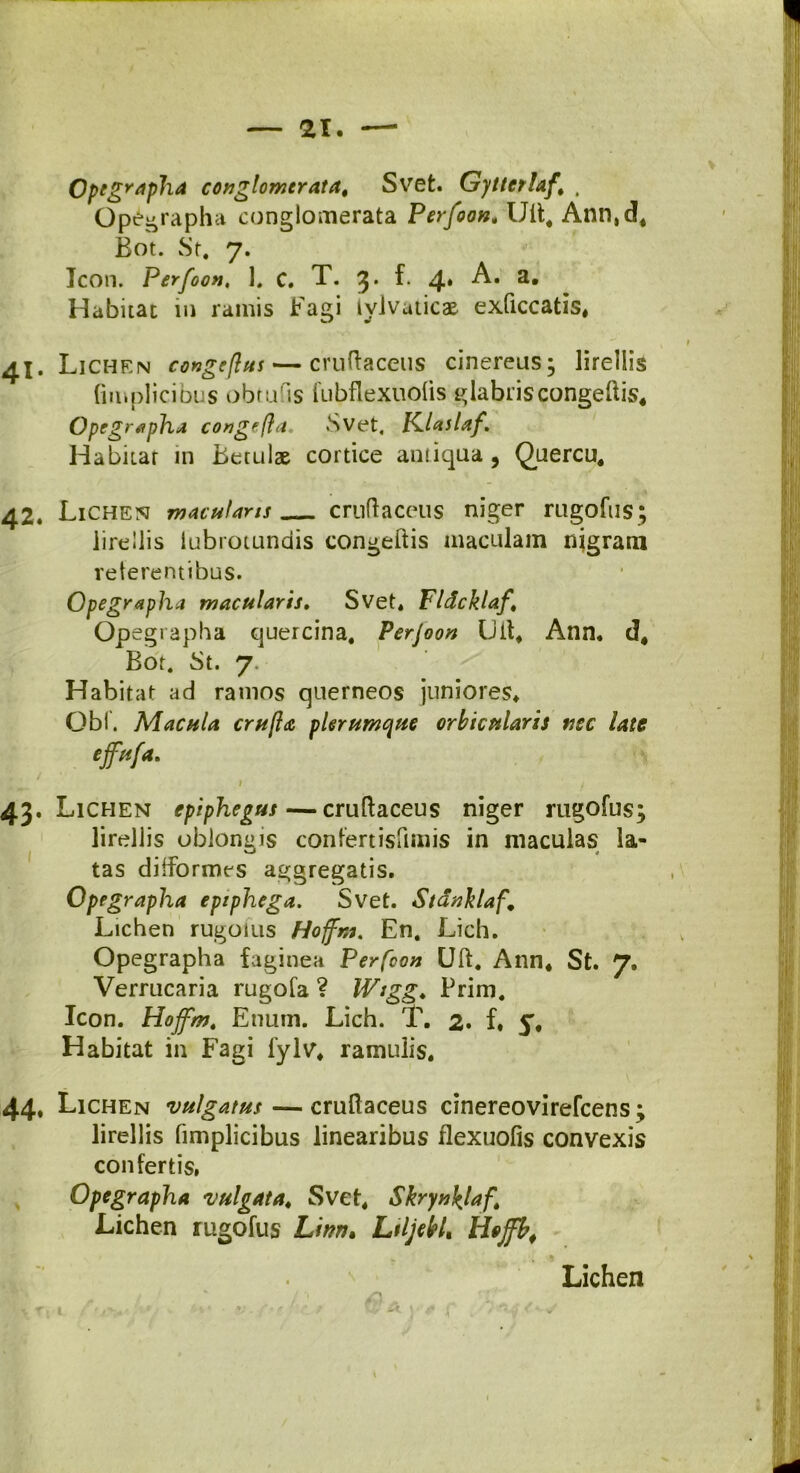 — 21. —
Opegrapha conglomerata, Svet. Gytterlaf. .
Opegrapha conglomerata Perſoon. Uſt. Ann. d.
Bot. St. 7.
Icon. Perſoon. l. c. T. 3. f. 4. A. a.
Habitat in ramis Fagi ſylvaticæ exſiccatis.
41. LICHEN congeſtus — cruſtaceus cinereus; lirellis
ſimplicibus obtuſis ſubflexuoſis glabris congeſtis.
Opegrapha congeſta. Svet. Klaslaf.
Habitat in Betulæ cortice antiqua, Quercu.
42. LICHEN macularis — cruſtaceus niger rugoſus;
lirellis ſubrotundis congeſtis maculam nigram
referentibus.
Opegrapha macularis. Svet. Fläcklaf.
Opegrapha quercina. Perſoon Uſt. Ann. d.
Bot. St. 7.
Habitat ad ramos querneos juniores.
Obſ. Macula cruſtæ plerumque orbicularis nec late
effuſa.
43. LICHEN epiphegus — cruſtaceus niger rugoſus;
lirellis oblongis confertisſimis in maculas la-
tas difformes aggregatis.
Opegrapha epiphega. Svet. Stänklaf.
Lichen rugoſus Hoffm. En. Lich.
Opegrapha faginea Perſoon Uſt. Ann. St. 7.
Verrucaria rugoſa? Wigg. Prim.
Icon. Hoffm. Enum. Lich. T. 2. f. 5.
Habitat in Fagi ſylv. ramulis.
44. LICHEN vulgatus — cruſtaceus cinereovireſcens;
lirellis ſimplicibus linearibus flexuoſis convexis
confertis.
Opegrapha vulgata. Svet. Skrynklaf.
Lichen rugoſus Linn. Liljebl. Hoffb.
Lichen